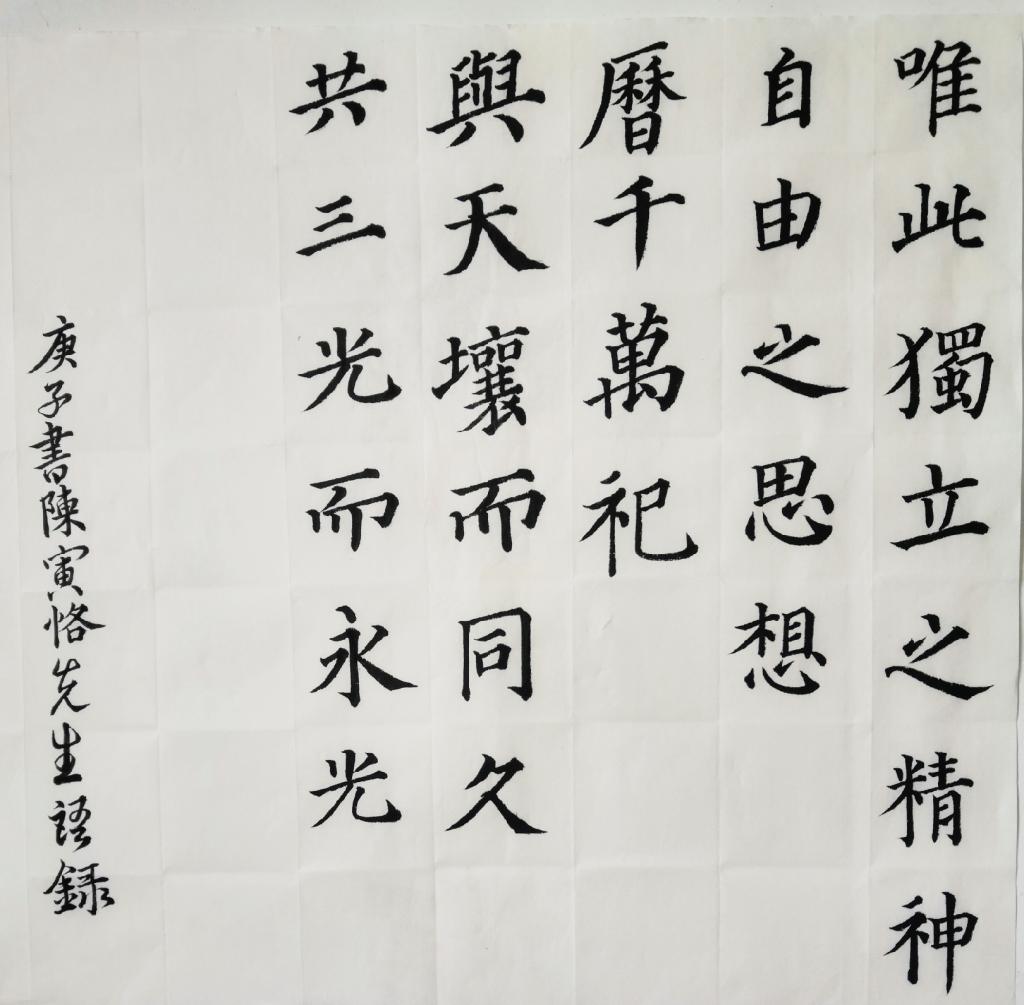 唯此獨立之精神
自由之思想
曆千萬祀
與天壤而同久
共三光而永光
庚子書陳寅恪先生語録